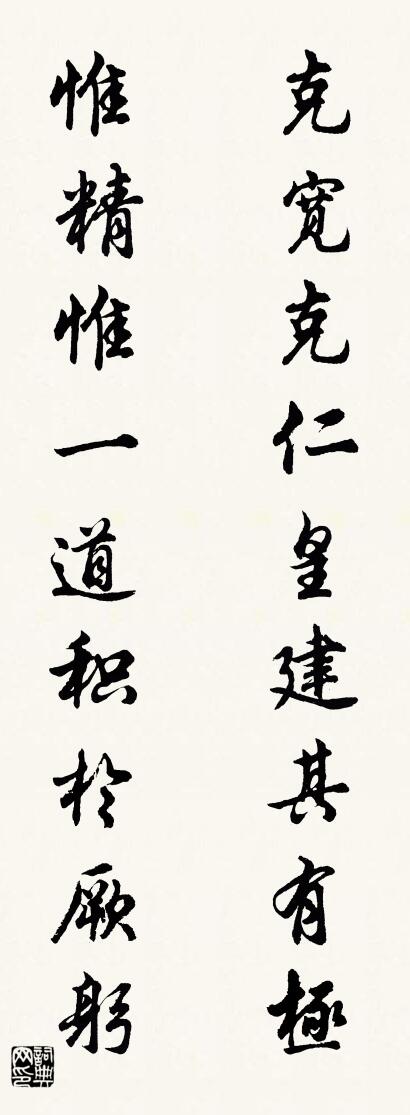 克寬克仁皇建其有極
惟精惟一道积於厥躬
詞典网印